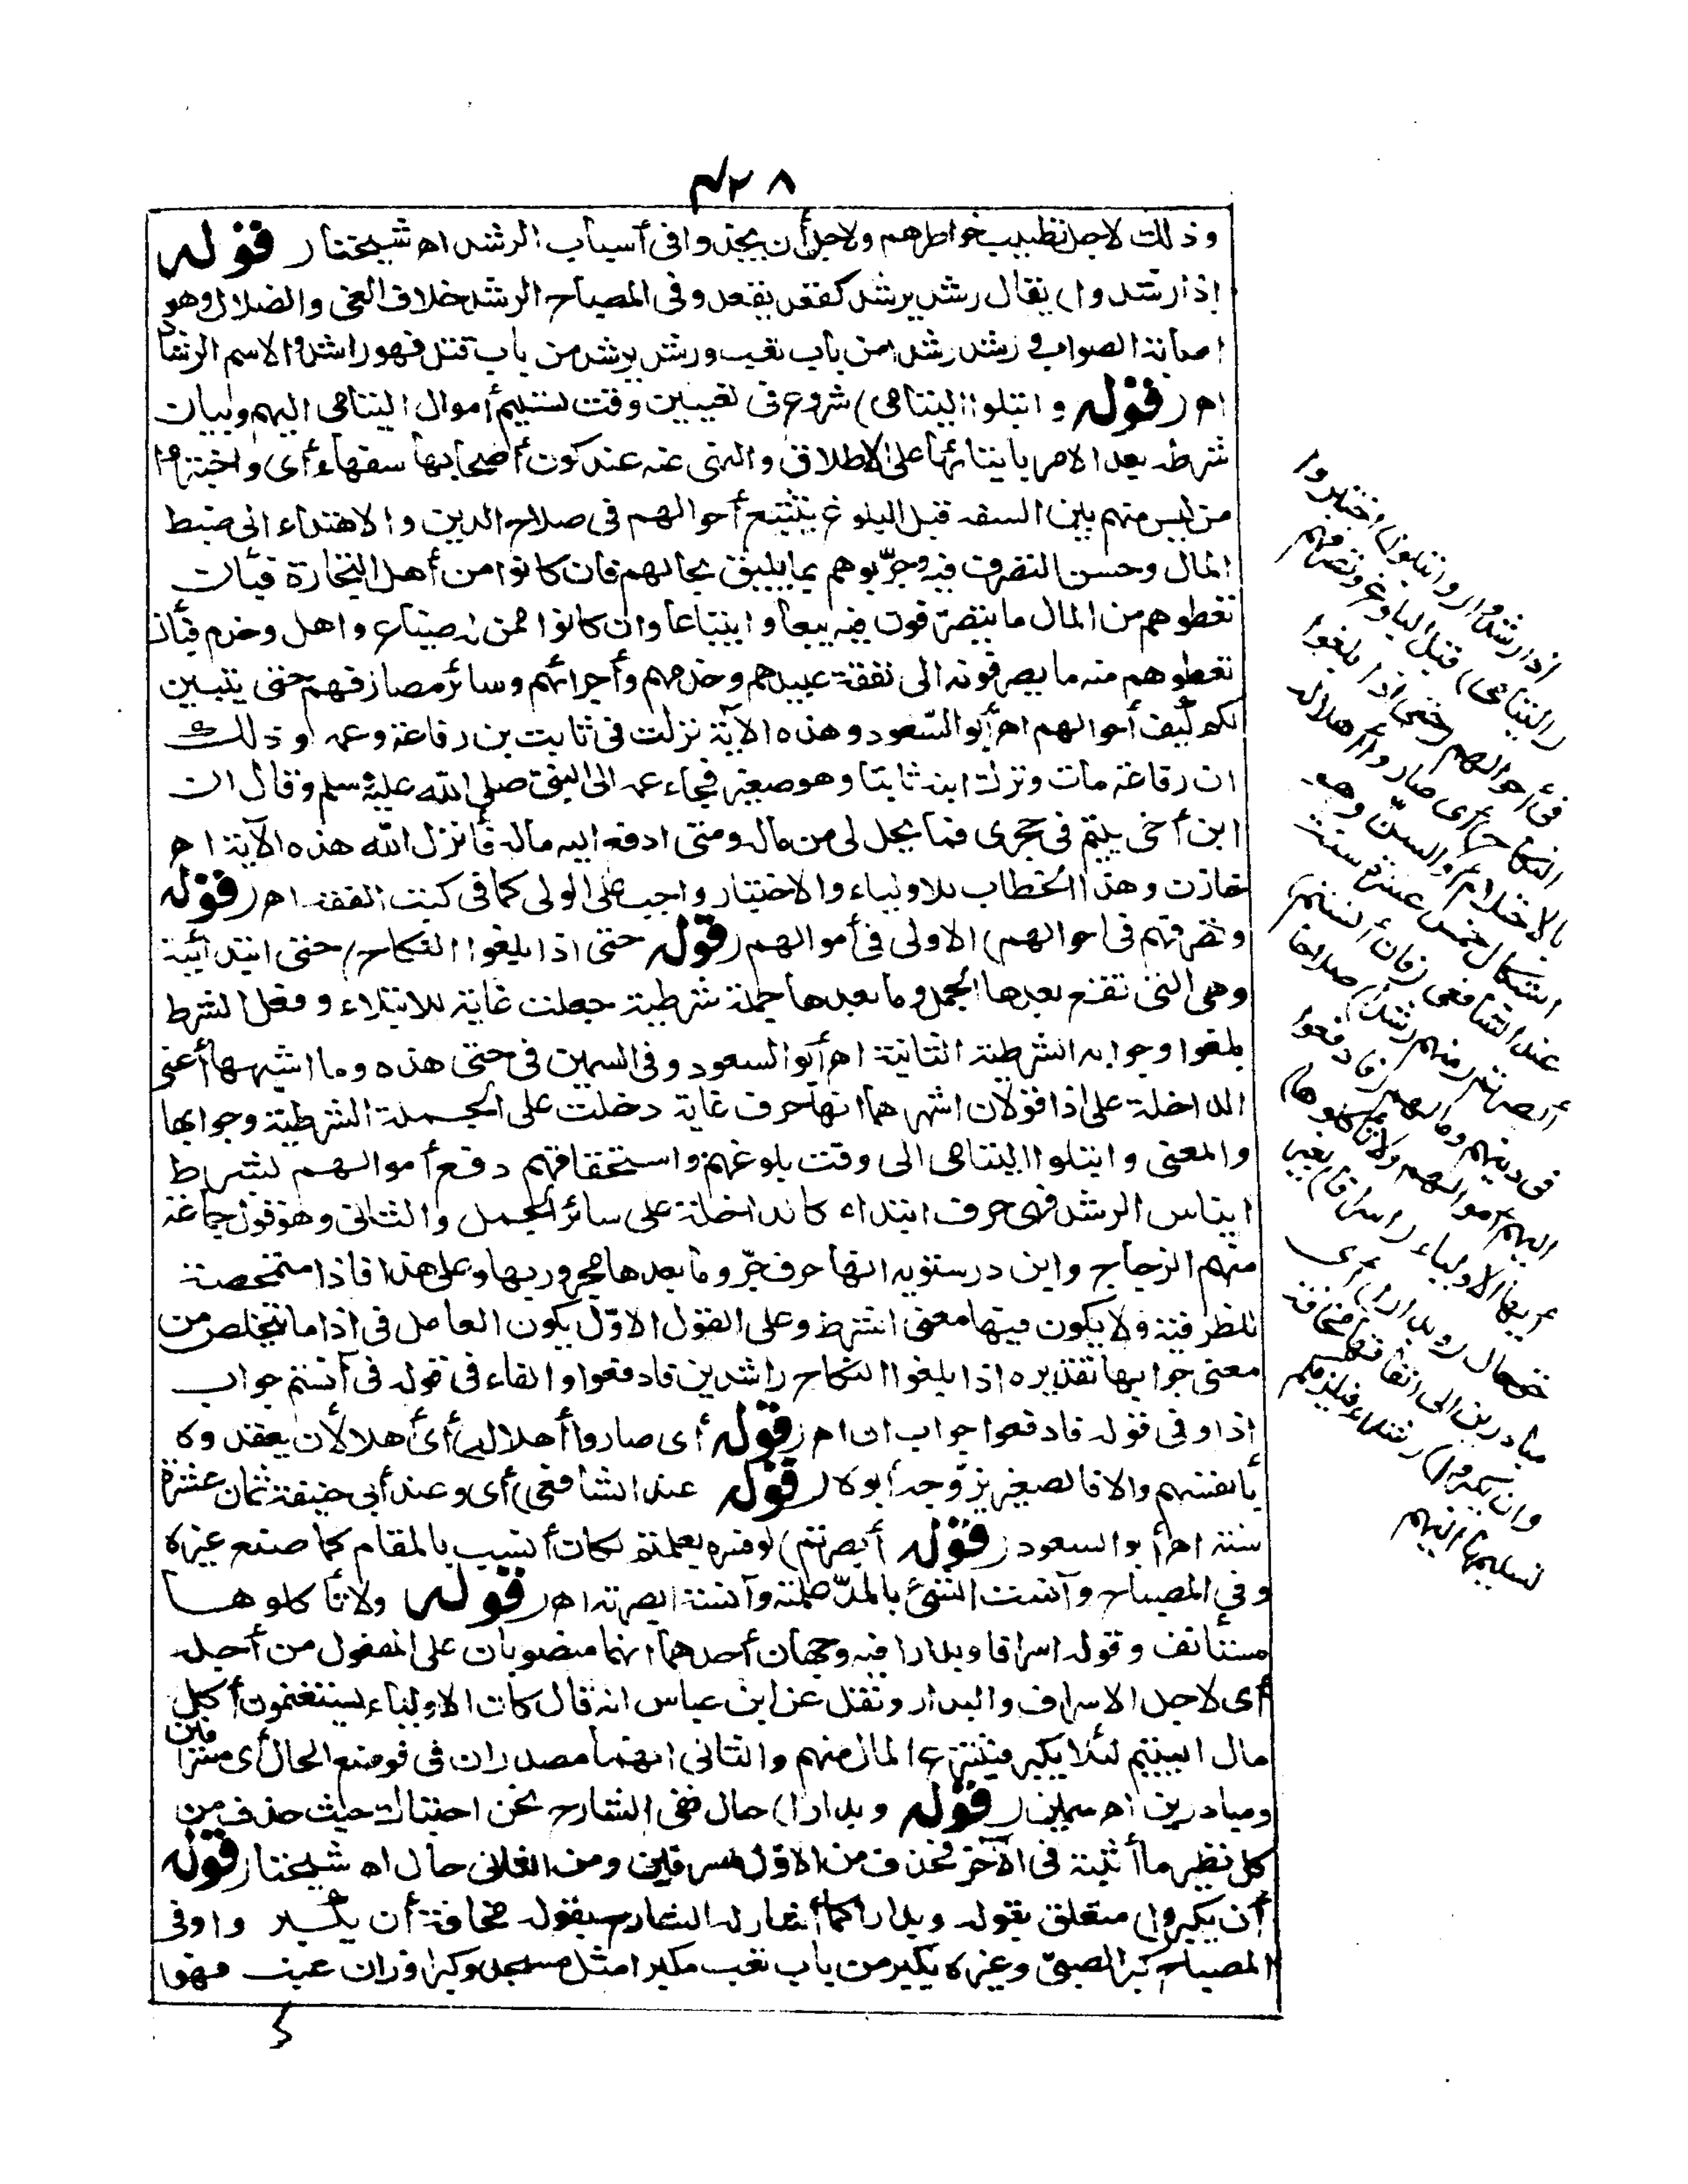 ٤٢٨
وذلك لاجل تطييب خواطرهم ولاجل أن يجدوا فى أسباب الرشد اه شيخنا (قوله
اذا رشدوا) يقال رشد يرشد كقعد يقعد وفى المصباح الرشد خلاف الغى والضلال وهو
اصابة الصواب ورشد رشدا من باب تعب ورشد يرشد من باب قتل فهو راشد والاسم الرشاد
اه (قوله وابتلوا اليتامى) شروع فى تعيين وقت تسليم أموال اليتامى اليهم وبيان
شرطه بعد الامر بايتائها على الاطلاق والنهى عنه عند كون أصحابها سفهاء أى واختبروا
من ليس منهم بين السفه قبل البلوغ بتتبع أحوالهم فى صلاح الدين والاهتداء الى ضبط
المال وحسن التصرف فيه وجرّبوهم بما يليق بحالهم فان كانوا من أهل التجارة فبأن
تعطوهم من المال ما يتصرفون فيه بيعا وابتياعا وان كانوا ممن له ضياع واهل وخدم فبأن
تعطوهم منه ما يصرفونه الى نفقة عبيدهم وخدمهم وأجرائهم وسائر مصارفهم حتى يتبين
لكم كيف أحوالهم اه أبو السعود وهذه الآية نزلت فى ثابت بن رفاعة وعمه وذلك
ان رفاعة مات وترك ابنه ثابتا وهو صغير فجاء عمه الى النبى صلى الله عليه وسلم وقال ان
ابن أخى يتيم فى حجرى فما يحل لى من ماله ومتى ادفع اليه ماله فأنزل الله هذه الآية اه
خازن وهذا الخطاب للاولياء والاختبار واجب على الولى كما فى كتب الفقه اه (قوله
وتصرفهم فى احوالهم) الاولى فى أموالهم (قوله حتى اذا بلغوا النكاح) حتى ابتدائية
وهى التى تقع بعدها الجمل وما بعدها جملة شرطية جعلت غاية للابتلاء وفعل الشرط
بلغوا وجوابه الشرطية الثانية اه أبو السعود وفى السمين فى حتى هذه وما اشبهها أعنى
الداخلة على اذا قولان اشهرهما انها حرف غاية دخلت على الجملة الشرطية وجوابها
والمعنى وابتلوا اليتامى الى وقت بلوغهم واستحقاقهم دفع أموالهم بشرط
ايناس الرشد فهى حرف ابتداء كالداخلة على سائر الجمل والثانى وهو قول جماعة
منهم الزجاج وابن درستويه انها حرف جرّ وما بعدها مجرور بها وعلى هذا فاذا متمحضة
للظرفية ولا يكون فيها معنى الشرط وعلى القول الاوّل يكون العامل فى اذا ما تتخلص من
معنى جوابها تقديره اذا بلغوا النكاح راشدين فادفعوا والفاء فى قوله فى آنستم جواب
اذا وفى قوله فادفعوا جواب ان اه (قوله أى صاروا أهلا له) أى أهلا لأن يعقدوه
بأنفسهم والا فالصغير يزوّجه أبوه (قوله عند الشافعى) أى وعند أبى حنيفة ثمان عشرة
سنة اه أبو السعود (قوله أبصرتم) لو فسره بعلمتم لكان أنسب بالمقام كما صنع غيره
وفى المصباح وآنست الشئ بالمدّ علمته وآنسته ابصرته اه (قوله ولا تأكلوها
مستأنف وقوله اسرافا وبدارا فيه وجهان أحدهما انهما منصوبان على المفعول من أجله
أى لاجل الاسراف والبدار ونقل عن ابن عباس انه قال كان الاولياء يستغنمون أكل
مال اليتيم لئلا يكبر فينتزع المال منهم والثانى انهما مصدران فى موضع الحال أى مسرفين
ومبادرين اه سمين (قوله وبدارا) حال ففى الشارح نحن احتباك حيث حذف من
كل نظير ما أثبته فى الآخر فحذف من الاوّل مسرفين ومن الثانى حال اه شيخنا (قوله
أن يكبروا) متعلق بقوله وبدارا كما أشار له الشارح بقوله مخافة أن يكبروا وفى
المصباح كبر الصبىّ وغيره يكبر من باب تعب مكبرا مثل مسجد وكبرا وزان عنب فهو
اذا رشدوا (وابتلوا) اختبروا
(اليتامى) قبل البلوغ وتصرفهم
فى أحوالهم (حتى اذا بلغوا
النكاح) أى صاروا أهلا له
بالاحتلام أو السنّ وهو
استكمال خمس عشرة سنة
عند الشافعى (فان آنستم)
أبصرتم (منهم رشدا) صلاحا
فى دينهم ومالهم (فادفعوا
اليهم أموالهم ولا تأكلوها)
أيها الاولياء (اسرافا) بغير
حق حال (وبدارا) أى
مبادرين الى انفاقها مخافة
(أن يكبروا) رشداء فيلزمكم
تسليمها اليهم